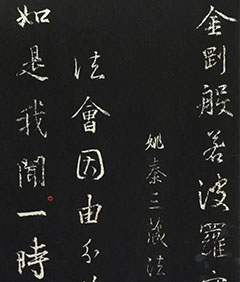 金剛般若波羅
姚秦三藏法
法會因由分
如是我聞一時